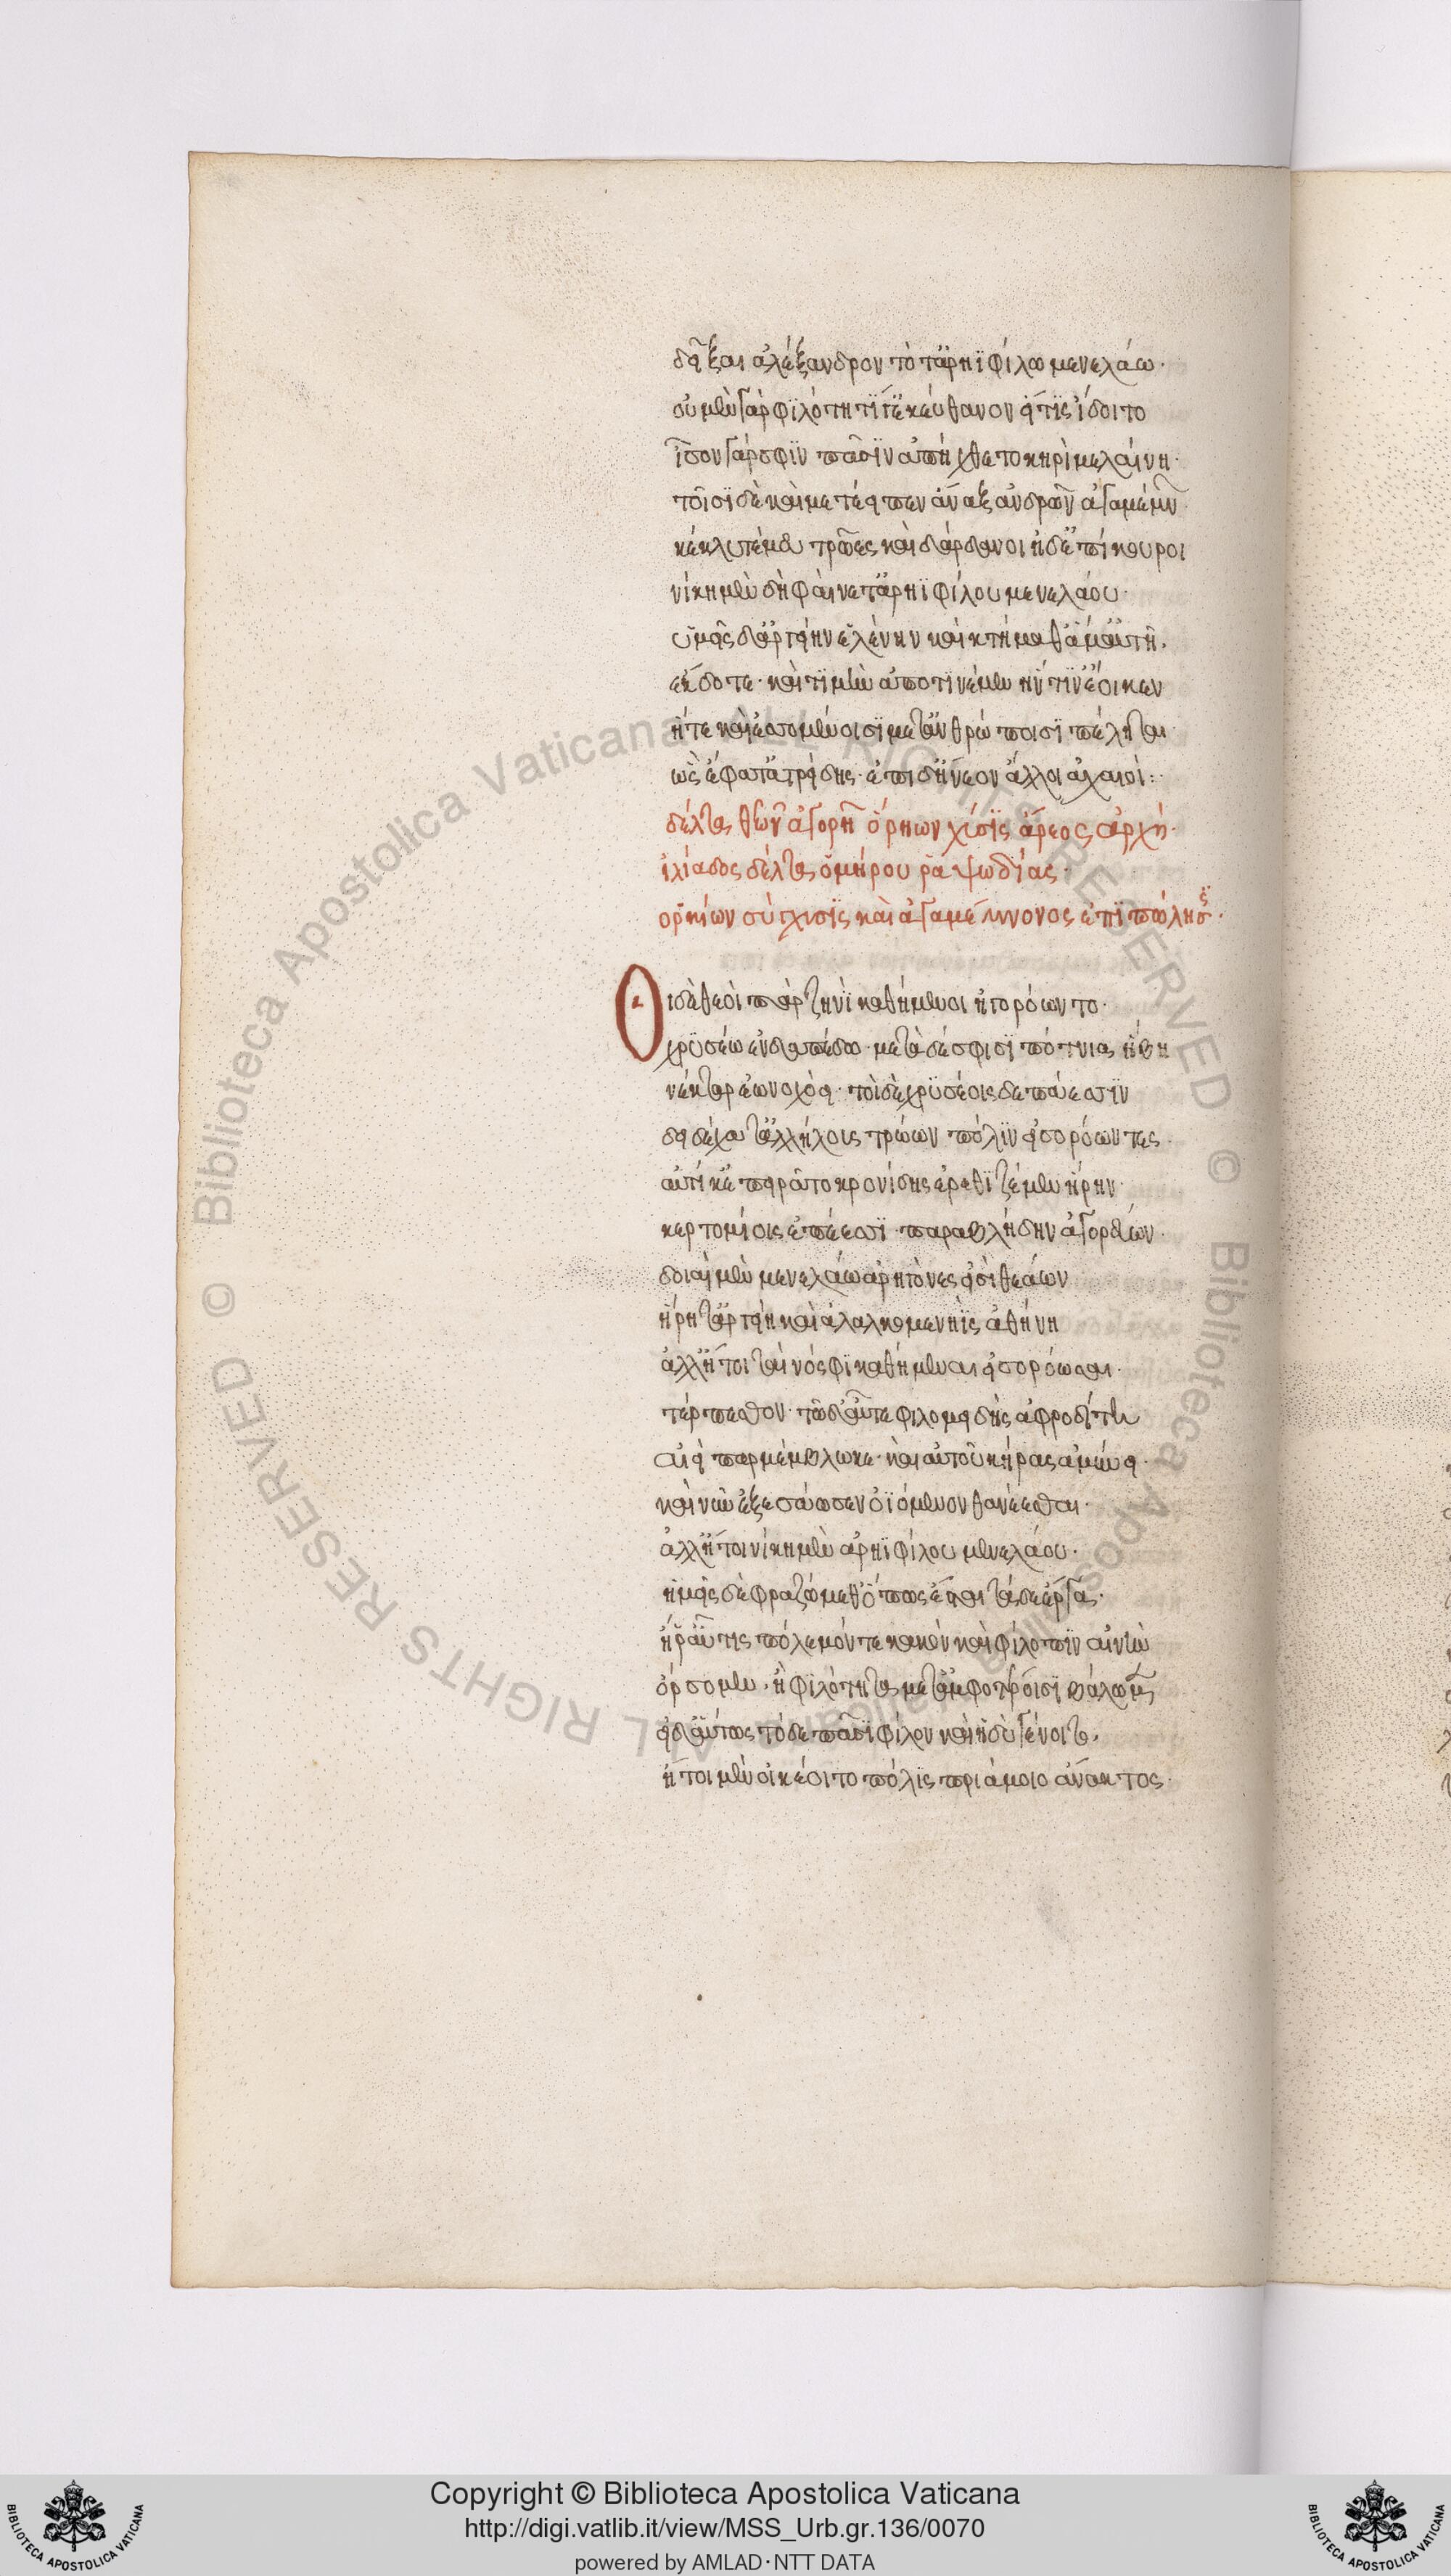 δεῖξαι ἀλέξανδρον τότ' ἀρηϊφίλω μενελάω·
οὐ μὲν γὰρ φϊλότητί γ' ἐκεύθανον εἴ τϊς ἴδοιτο
ἶσον γάρ σφϊν πᾶσϊν ἀπήχθετο κηρὶ μελαίνη·
τοῖσϊ δὲ καὶ μετέειπεν ἄναξ ἀνδρῶν ἀγαμέμνων
κέκλυτέ μευ τρῶες καὶ δάρδανοι ἠδ' ἐπίκουροι
νίκη μὲν δὴ φαίνετ' ἀρηϊφίλου μενελάου·
ὑμεῖς δ' ἀργείην ἑλένην καὶ κτήμαθ' ἅμ' αὐτῆ.
ἔκδοτε· καὶ τϊμὴν ἀποτϊνέμεν ἥν τϊν' ἔοικεν
ἥτε καὶ ἐσσομένοισϊ μετ' ἀνθρώποισϊ πέληται·
ὣς ἔφατ' ἀτρείδης· ἐπὶ δ' ἤνεον ἄλλοι ἀχαιοί:·
δέλτα θεῶν ἀγορὴ ὅρκων χύσϊς ἄρεος ἀρχή·
ἰλιάδος δέλτα ὁμήρου ῥαψωδίας·
ὁρκίων σύγχυσϊς καὶ ἀγαμέμνονος ἐπϊπώλησϊς·
Οἱ δὲ θεοὶ πὰρ ζηνὶ καθήμενοι ἠγορόωντο·
χρϋσέω ἐν δαπέδω· μετὰ δέ σφισϊ πότνια ἥβη
νέκταρ ἐωνοχόει· τοὶ δὲ χρϋσέοις δεπάεσσϊν
δειδέχατ' ἀλλήλοις τρώων πόλϊν εἰσορόωντες·
αὐτίκ' ἐπειρᾶτο κρονίδης ἐρεθϊζέμεν ἥρην·
κερτομίοις ἐπέεσσϊ παραβλήδην ἀγορεύων·
δοιαὶ μὲν μενελάω ἀρηγόνες εἰσὶ θεάων
ἥρη τ' ἀργείη καὶ ἀλαλκομενηῒς ἀθήνη
ἀλλ' ἤτοι ταὶ νόσφϊ καθήμεναι εἰσορόωσαι·
τέρπεσθον· τῶ δ' αὖτε φιλομειδὴς ἀφροδίτη
αἰεὶ παρμέμβλωκε· καὶ αὐτοῦ κῆρας ἀμύνει·
καὶ νῦν ἐξεσάωσεν ὀϊόμενον θανέεσθαι·
ἀλλ' ἤτοι νίκη μὲν ἀρηϊφίλου μενελάου·
ἡμεῖς δὲ φραζώμεθ' ὅπως ἔσται τάδε ἔργα·
ἤ ῥ' αὖτις πόλεμόν τε κακὸν καὶ φύλοπϊν αἰνὴν
ὄρσομεν· ἢ φϊλότητα μετ' ἀμφοτέροισϊ βάλωμεν
εἰ δ' αὔτως τόδε πᾶσϊ φίλον καὶ ἡδὺ γένοιτο.
ἤτοι μὲν οἰκέοιτο πόλϊς πριάμοιο ἄνακτος·
Copyright © Biblioteca Apostolica Vaticana
http://digi.vatlib.it/view/MSS_Urb.gr.136/0070
powered by AMLAD·NTT DATA